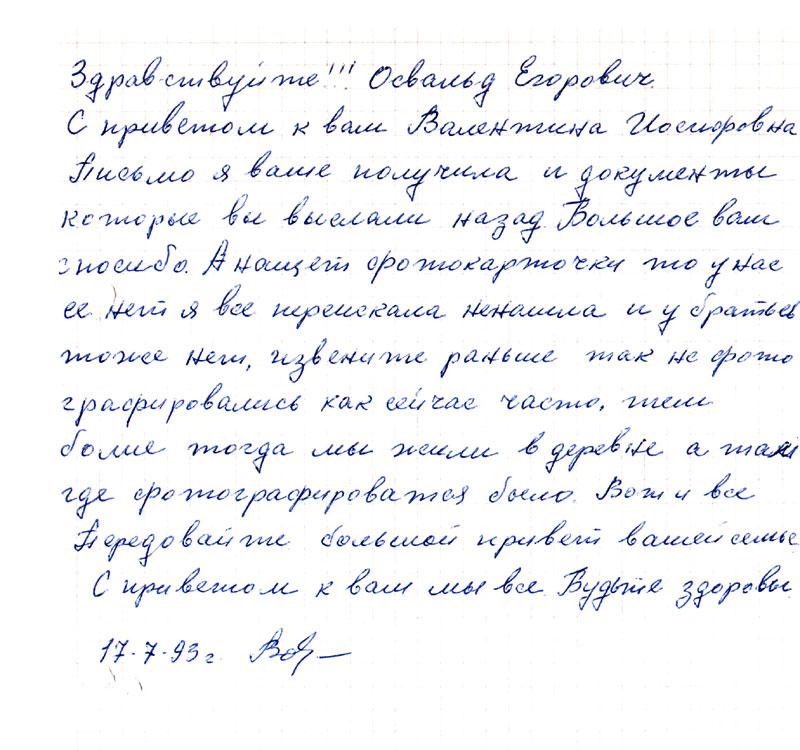 Здравствуйте!!! Освальд Егорович.
С приветом к вам Валентина Иосифовна
Письмо я ваше получила и документы
которые вы выслали назад. Большое вам
спосибо. А нащет фотокарточки то у нас
ее нет я все переискала ненашла и у братьев
тоже нет, извените раньше так не фото
графировались как сейчас часто, тем
более тогда мы жили в деревне а там
где фотографироватся было. Вот и все
Передовайте большой привет вашей семье
С приветом к вам мы все. Будьте здоровы.
17-7-93 г.